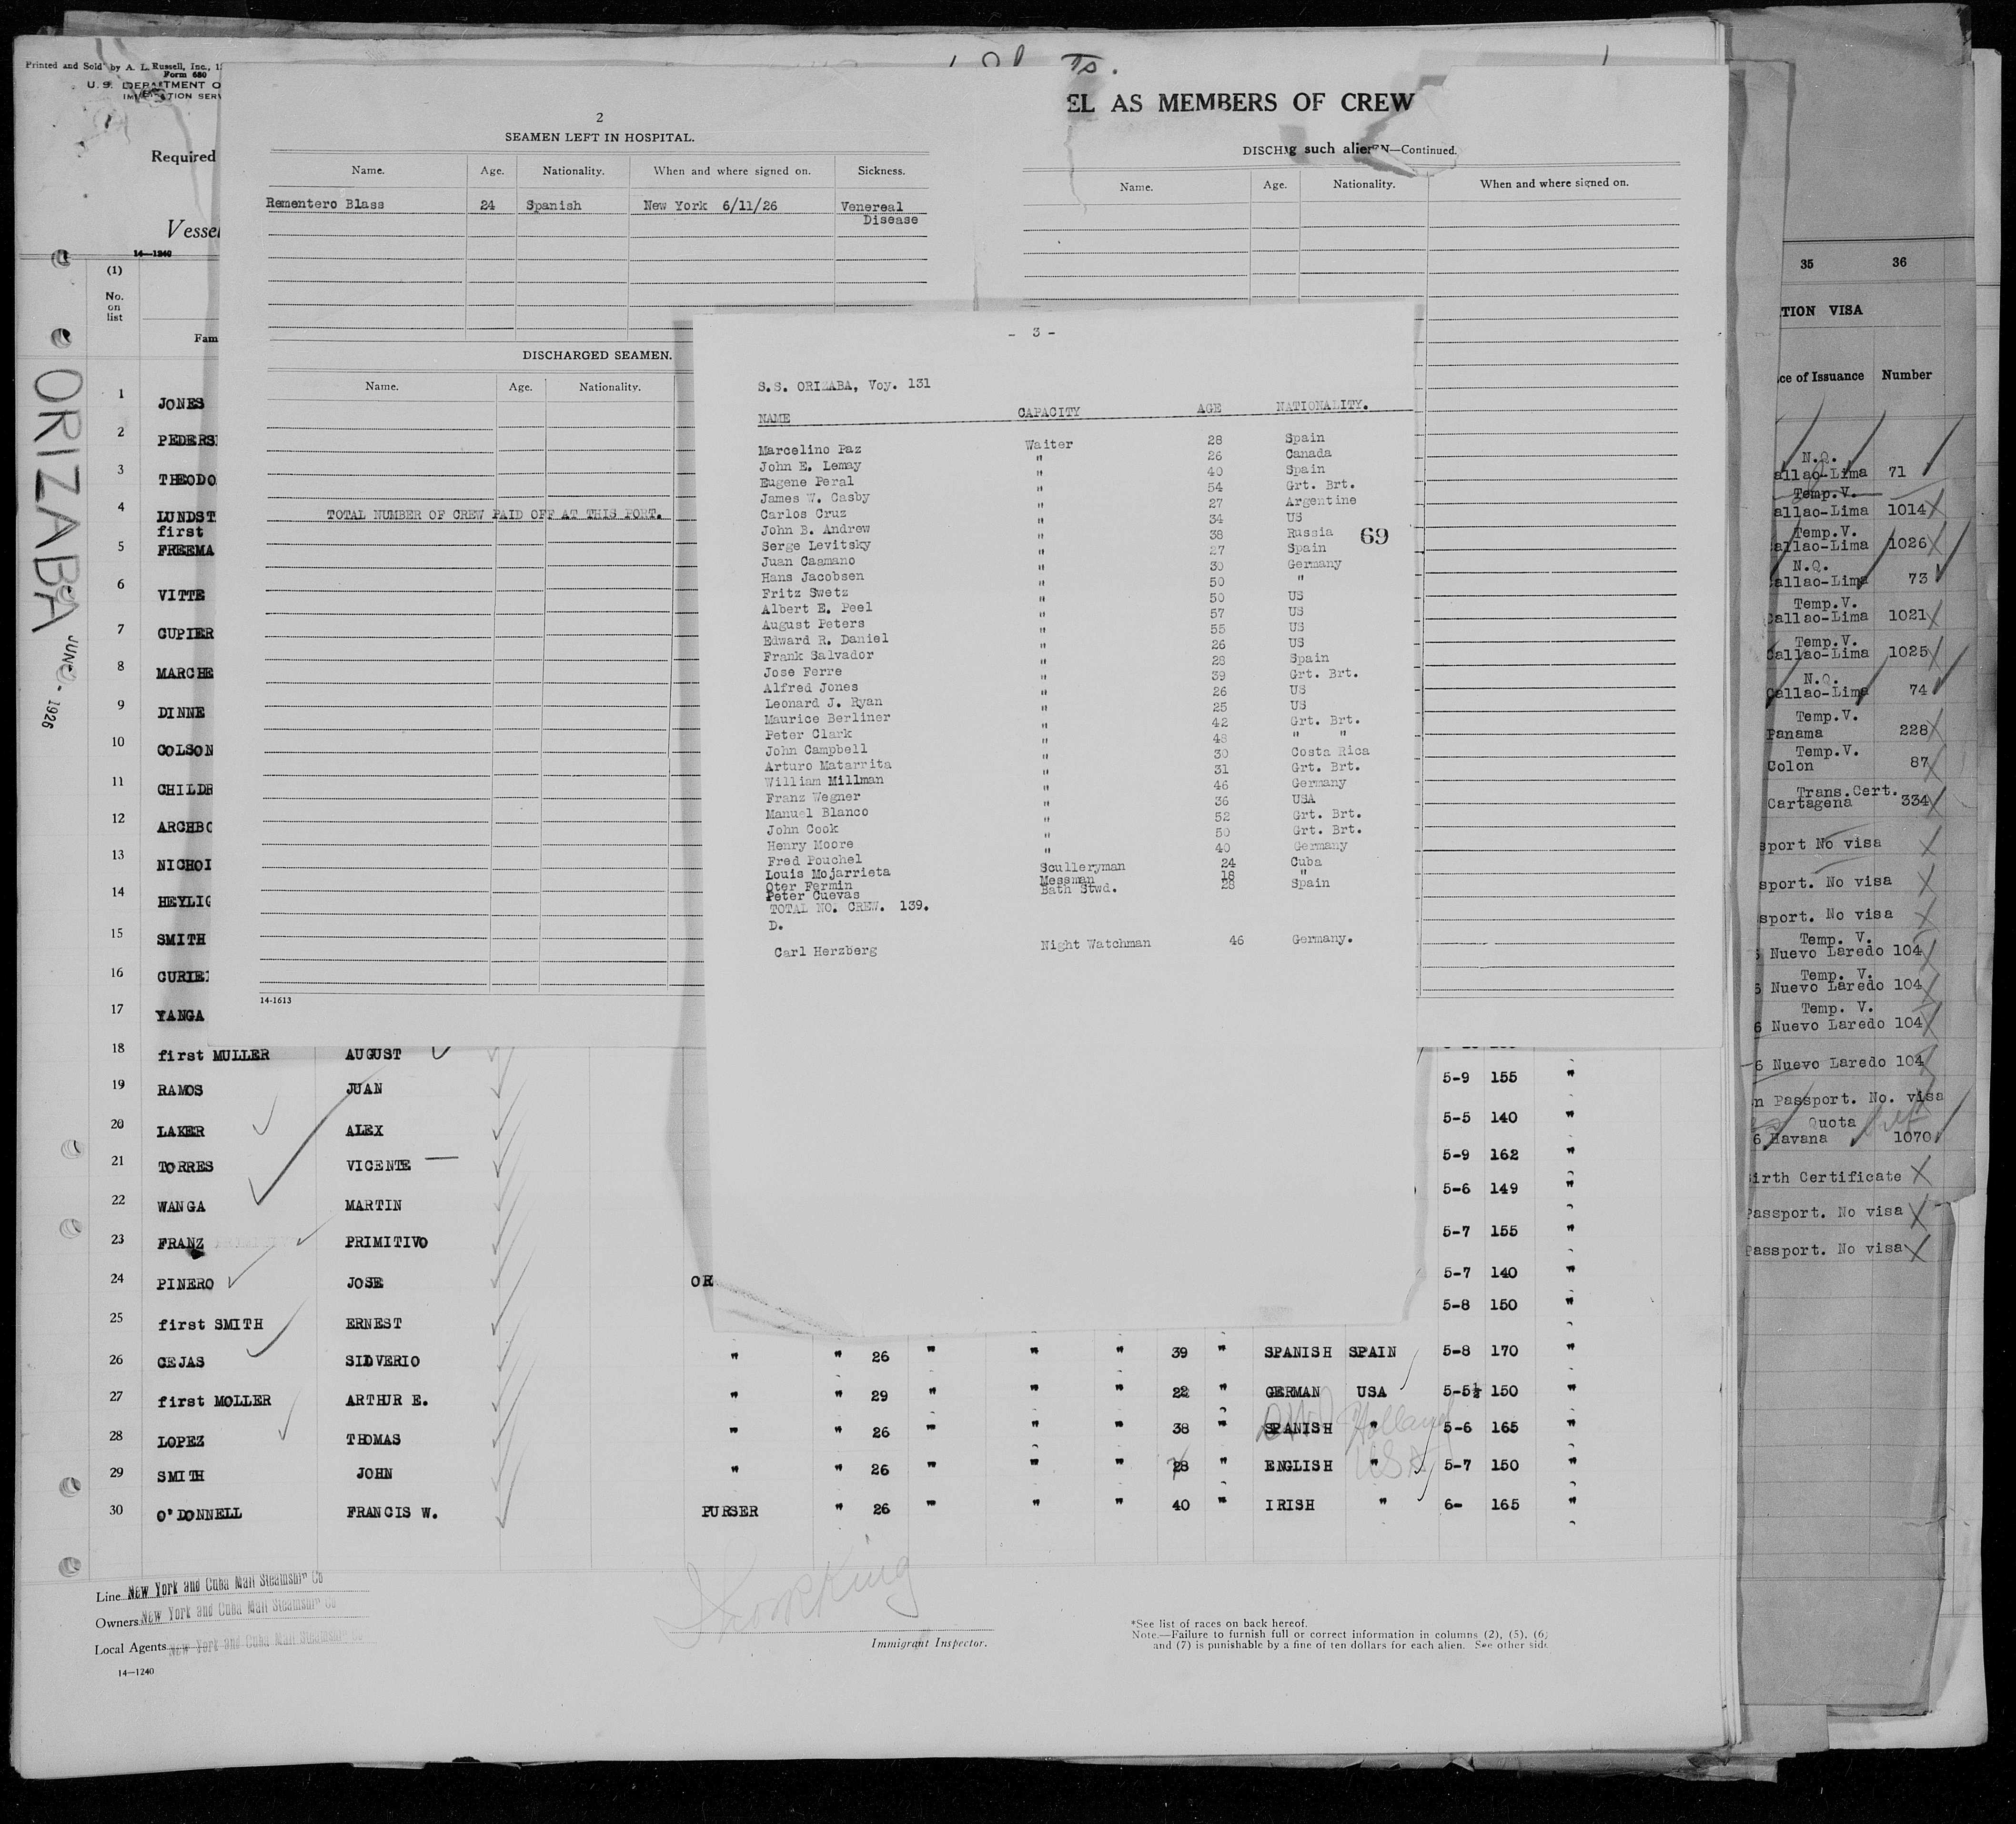 Printed and Sold by A. L. Russell, Inc.,
Form 680
U. S. DEPARTMENT O
IMMIGRATION SERV
Required
Vessel
14—1240
ORIZABA
JUNE - 1926
(1)
No.
on
list
Fam
1 JONES
2 PEDERS
3 THEODO
4 LUNDST
first
5 FREEMA
6 VITTE
7 CUPIER
8 MARCHE
9 DINNE
10 COLSON
11 CHILDR
12 ARCHBO
13 NICHOL
14 HEYLIG
15 SMITH
16 CURIE
17 YANGA
18 first MULLER AUGUST
19 RAMOS JUAN 5-9 155 "
20 LAKER ALEX 5-5 140 "
21 TORRES VICENTE 5-9 162 "
22 WANGA MARTIN 5-6 149 "
23 FRANZ PRIMITIVO 5-7 155 "
24 PINERO JOSE 5-7 140 "
25 first SMITH ERNEST 5-8 150 "
26 CEJAS SILVERIO " " 26 " " " 39 " SPANISH SPAIN 5-8 170 "
27 first MOLLER ARTHUR E. " " 29 " " " 22 " GERMAN USA 5-5½ 150 "
28 LOPEZ THOMAS " " 26 " " " 38 " SPANISH " 5-6 165 "
Holland
29 SMITH JOHN " " 26 " " " 28 " ENGLISH " 5-7 150 "
USA
30 O'DONNELL FRANCIS W. PURSER " 26 " " " 40 " IRISH " 6- 165 "
Line New York and Cuba Mail Steamship Co
Owners New York and Cuba Mail Steamship Co
Local Agents New York and Cuba Mail Steamship Co
14—1240
Immigrant Inspector.
*See list of races on back hereof.
Note.—Failure to furnish full or correct information in columns (2), (5), (6)
and (7) is punishable by a fine of ten dollars for each alien. See other side
2
SEAMEN LEFT IN HOSPITAL.
Name. Age. Nationality. When and where signed on. Sickness.
Rementero Blass 24 Spanish New York 6/11/26 Venereal
Disease
DISCHARGED SEAMEN.
Name. Age. Nationality.
TOTAL NUMBER OF CREW PAID OFF AT THIS PORT.
69
14-1613
EL AS MEMBERS OF CREW
g such alie
DISCH EN—Continued.
Name. Age. Nationality. When and where signed on.
- 3 -
S.S. ORIZABA, Voy. 131
NAME CAPACITY AGE NATIONALITY.
Marcelino Paz Waiter 28 Spain
John E. Lemay " 26 Canada
Eugene Peral " 40 Spain
James W. Casby " 54 Grt. Brt.
Carlos Cruz " 27 Argentine
John B. Andrew " 34 US
Serge Levitsky " 38 Russia
Juan Caamano " 27 Spain
Hans Jacobsen " 30 Germany
Fritz Swetz " 50 "
Albert E. Peel " 50 US
August Peters " 57 US
Edward R. Daniel " 55 US
Frank Salvador " 26 US
Jose Ferre " 28 Spain
Alfred Jones " 39 Grt. Brt.
Leonard J. Ryan " 26 US
Maurice Berliner " 25 US
Peter Clark " 42 Grt. Brt.
John Campbell " 48 " "
Arturo Matarrita " 30 Costa Rica
William Millman " 31 Grt. Brt.
Franz Wegner " 46 Germany
Manuel Blanco " 36 USA
John Cook " 52 Grt. Brt.
Henry Moore " 50 Grt. Brt.
Fred Pouchel " 40 Germany
Louis Mojarrieta Sculleryman 24 Cuba
Oter Fermin Messman 18 "
Peter Cuevas Bath Stwd. 28 Spain
TOTAL NO. CREW. 139.
D.
Carl Herzberg Night Watchman 46 Germany.
35 36
TION VISA
ce of Issuance Number
N.Q.
allao-Lima 71
Temp.V.
allao-Lima 1014
Temp.V.
allao-Lima 1026
N.Q.
allao-Lima 73
Temp.V.
Callao-Lima 1021
Temp.V.
Callao-Lima 1025
N.Q.
Callao-Lima 74
Temp.V.
Panama 228
Temp.V.
Colon 87
Trans.Cert.
Cartagena 334
sport No visa
sport. No visa
sport. No visa
Temp. V.
Nuevo Laredo 104
Temp. V.
6 Nuevo Laredo 104
Temp. V.
6 Nuevo Laredo 104
6 Nuevo Laredo 104
n Passport. No. visa
Quota
6 Havana 1070
irth Certificate
Passport. No visa
Passport. No visa